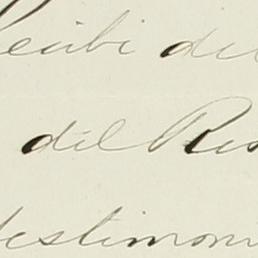 Recibi del
del Res
testimoni